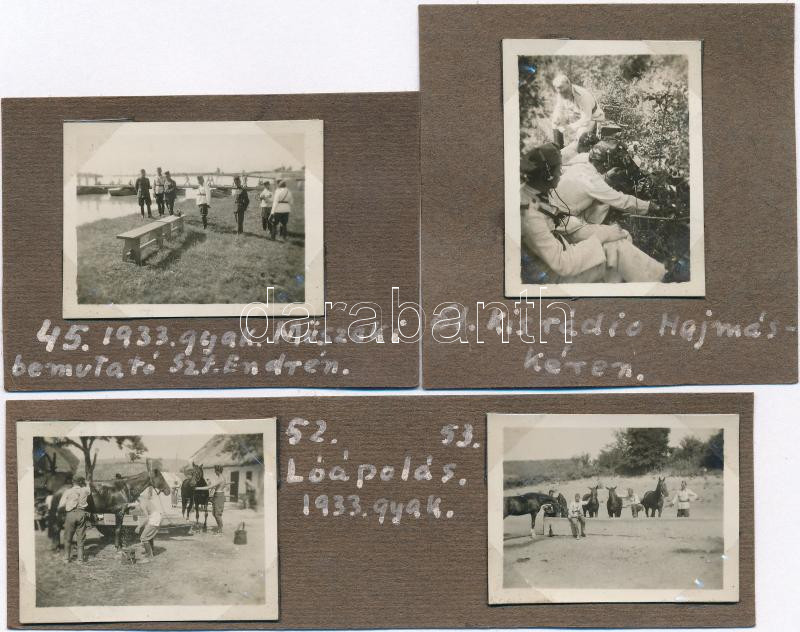 45. 1933. gyak. Műszaki
bemutató Szt. Endrén.
R/3 rádio Hajmás-
kéren.
darabanth
52. 53.
Lóápolás.
1933. gyak.